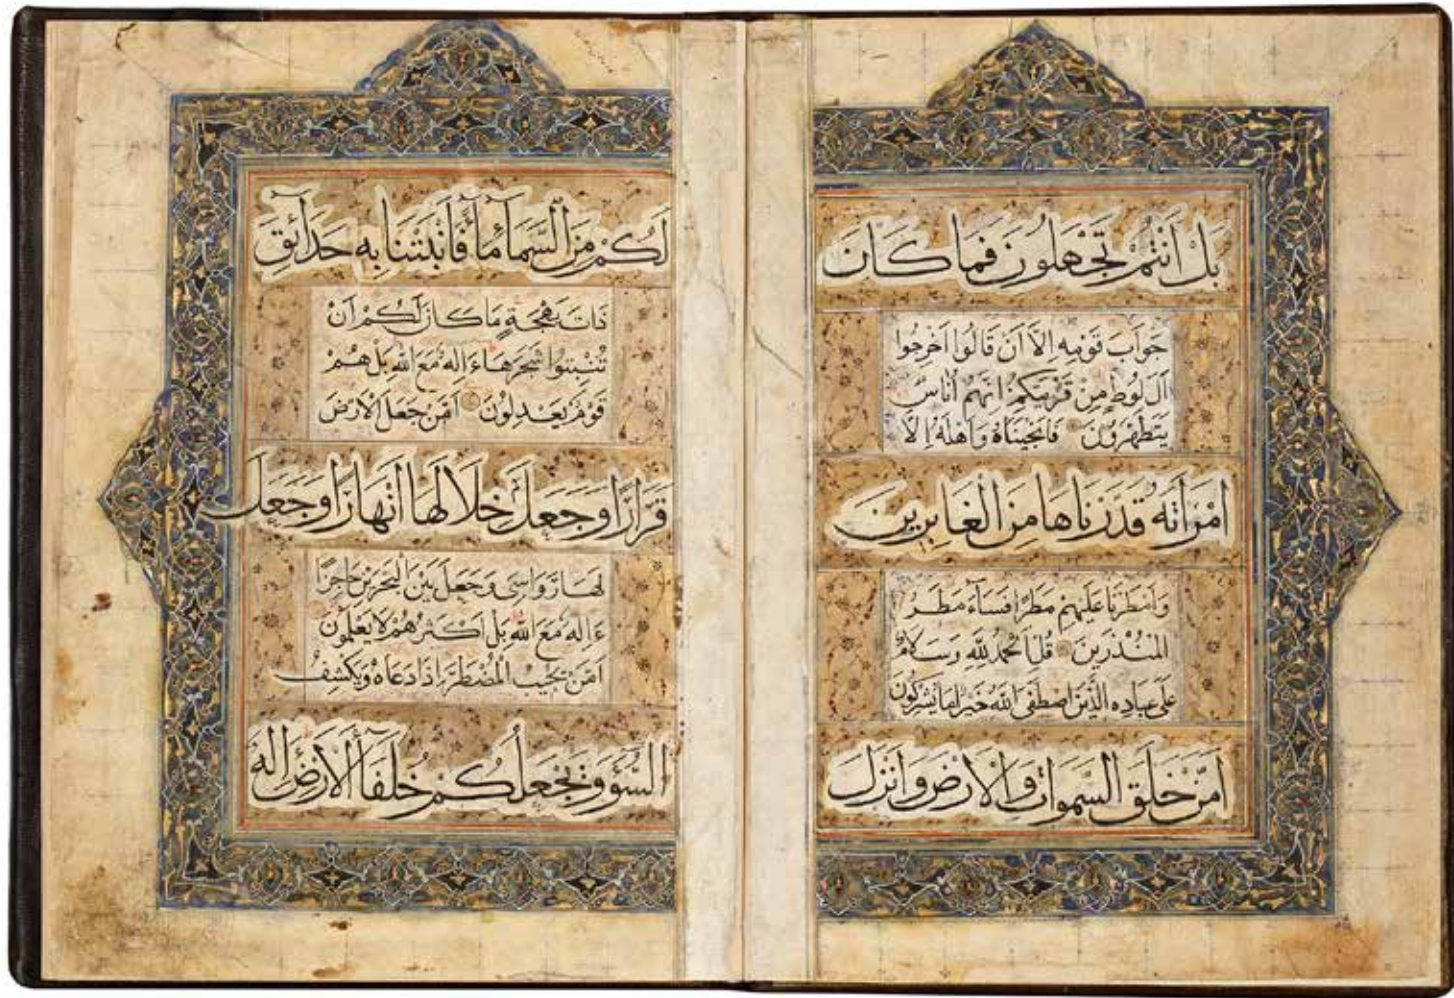 بَلْ اَنْتُمْ تَجْهَلُونَ فَمَا كَانَ
جَوَابَ قَوْمِهِ اِلَّا اَنْ قَالُوا اَخْرِجُوا
آلَ لُوطٍ مِنْ قَرْيَتِكُمْ اِنَّهُمْ اُنَاسٌ
يَتَطَهَّرُونَ فَاَنْجَيْنَاهُ وَاَهْلَهُ اِلَّا
امْرَاَتَهُ قَدَّرْنَاهَا مِنَ الْغَابِرِينَ
وَاَمْطَرْنَا عَلَيْهِمْ مَطَرًا فَسَآءَ مَطَرُ
الْمُنْذَرِينَ قُلِ الْحَمْدُ لِلّٰهِ وَسَلَامٌ
عَلٰى عِبَادِهِ الَّذِينَ اصْطَفٰى اللّٰهُ خَيْرٌ اَمَا يُشْرِكُونَ
اَمَّنْ خَلَقَ السَّمٰوَاتِ وَالْاَرْضَ وَاَنْزَلَ
لَكُمْ مِنَ السَّمَآءِ مَآءً فَاَنْبَتْنَا بِهِ حَدَآئِقَ
ذَاتَ بَهْجَةٍ مَا كَانَ لَكُمْ اَنْ
تُنْبِتُوا شَجَرَهَا ءَاِلٰهٌ مَعَ اللّٰهِ بَلْ هُمْ
قَوْمٌ يَعْدِلُونَ اَمَّنْ جَعَلَ الْاَرْضَ
قَرَارًا وَجَعَلَ خِلَالَهَا اَنْهَارًا وَجَعَلَ
لَهَا رَوَاسِىَ وَجَعَلَ بَيْنَ الْبَحْرَيْنِ حَاجِزًا
ءَاِلٰهٌ مَعَ اللّٰهِ بَلْ اَكْثَرُهُمْ لَا يَعْلَمُونَ
اَمَّنْ يُجِيبُ الْمُضْطَرَّ اِذَا دَعَاهُ وَيَكْشِفُ
السُّوۤءَ وَيَجْعَلُكُمْ خُلَفَآءَ الْاَرْضِ ءَاِلٰهٌ